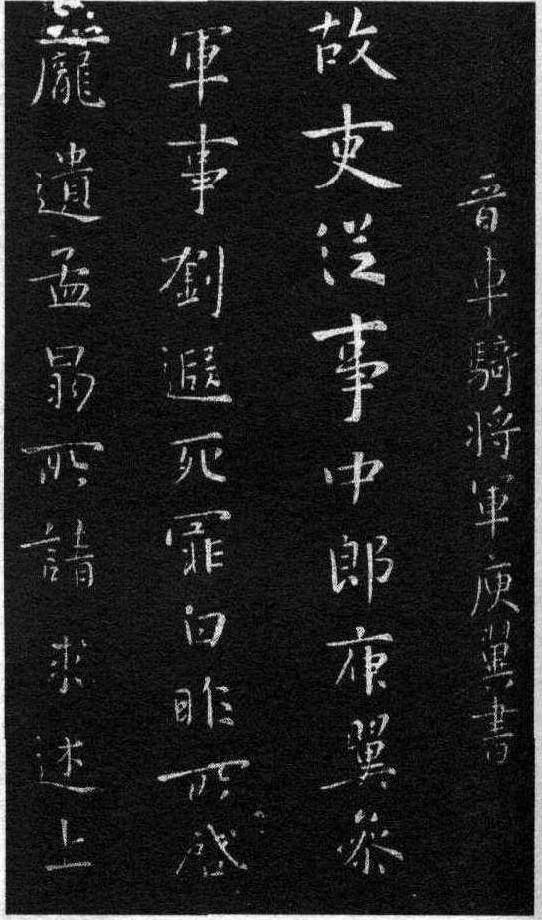 晋車騎将軍庾翼書
故吏従事中郎庾翼參
軍事劉遐死罪白昨所感
龐遺孟昜所請求述上